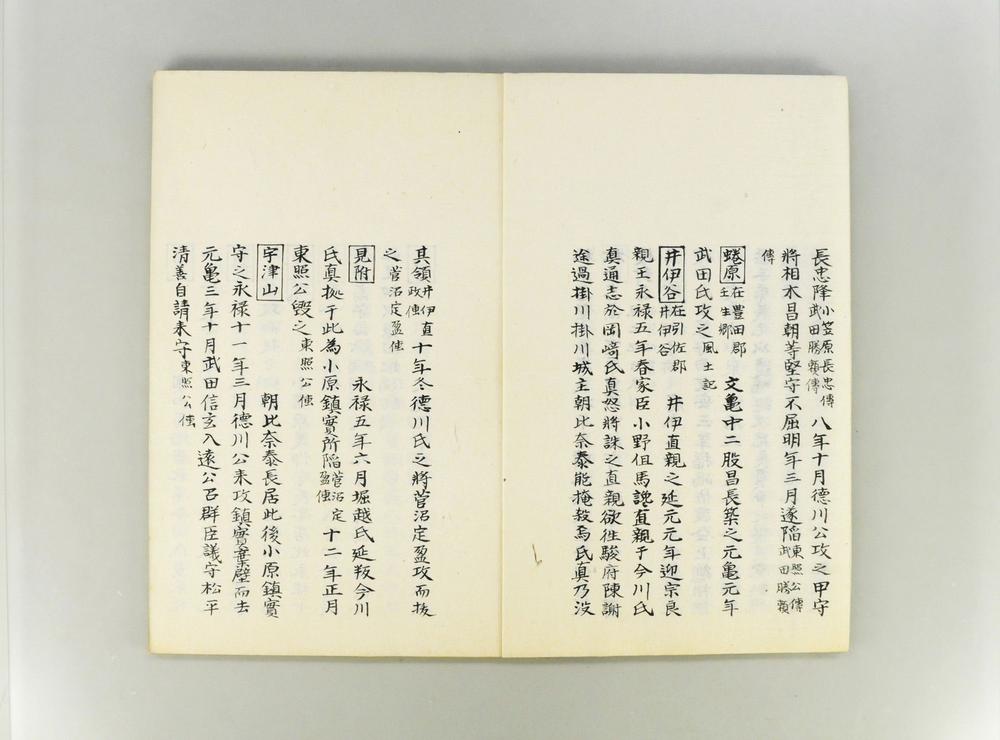 長忠降小笠原長忠傳武田勝頼傳八年十月德川公攻之甲守
將相木昌朝等堅守不屈明年三月遂陥東照公傳武田勝頼
傳
蜷原在豊田郡壬生郷文亀中二股昌長築之元亀元年
武田氏攻之風土記
井伊谷在引佐郡井伊谷井伊直親之延元元年迎宗良
親王永禄五年春家臣小野但馬讒直親于今川氏
真通志於岡﨑氏真怒將誅之直親欲往駿府陳謝
途過掛川掛川城主朝比奈泰能掩殺焉氏真乃沒
其領井伊直政傳十年冬德川氏之將菅沼定盈攻而抜
之菅沼定盈傳
見附永禄五年六月堀越氏延叛今川
氏真拠于此為小原鎮實所陥菅沼定盈傳十二年正月
東照公毀之東照公傳
宇津山朝比奈泰長居此後小原鎮實
守之永禄十一年三月德川公来攻鎮實棄壁而去
元亀三年十月武田信玄入遠公召群臣議守松平
清善自請来守東照公傳